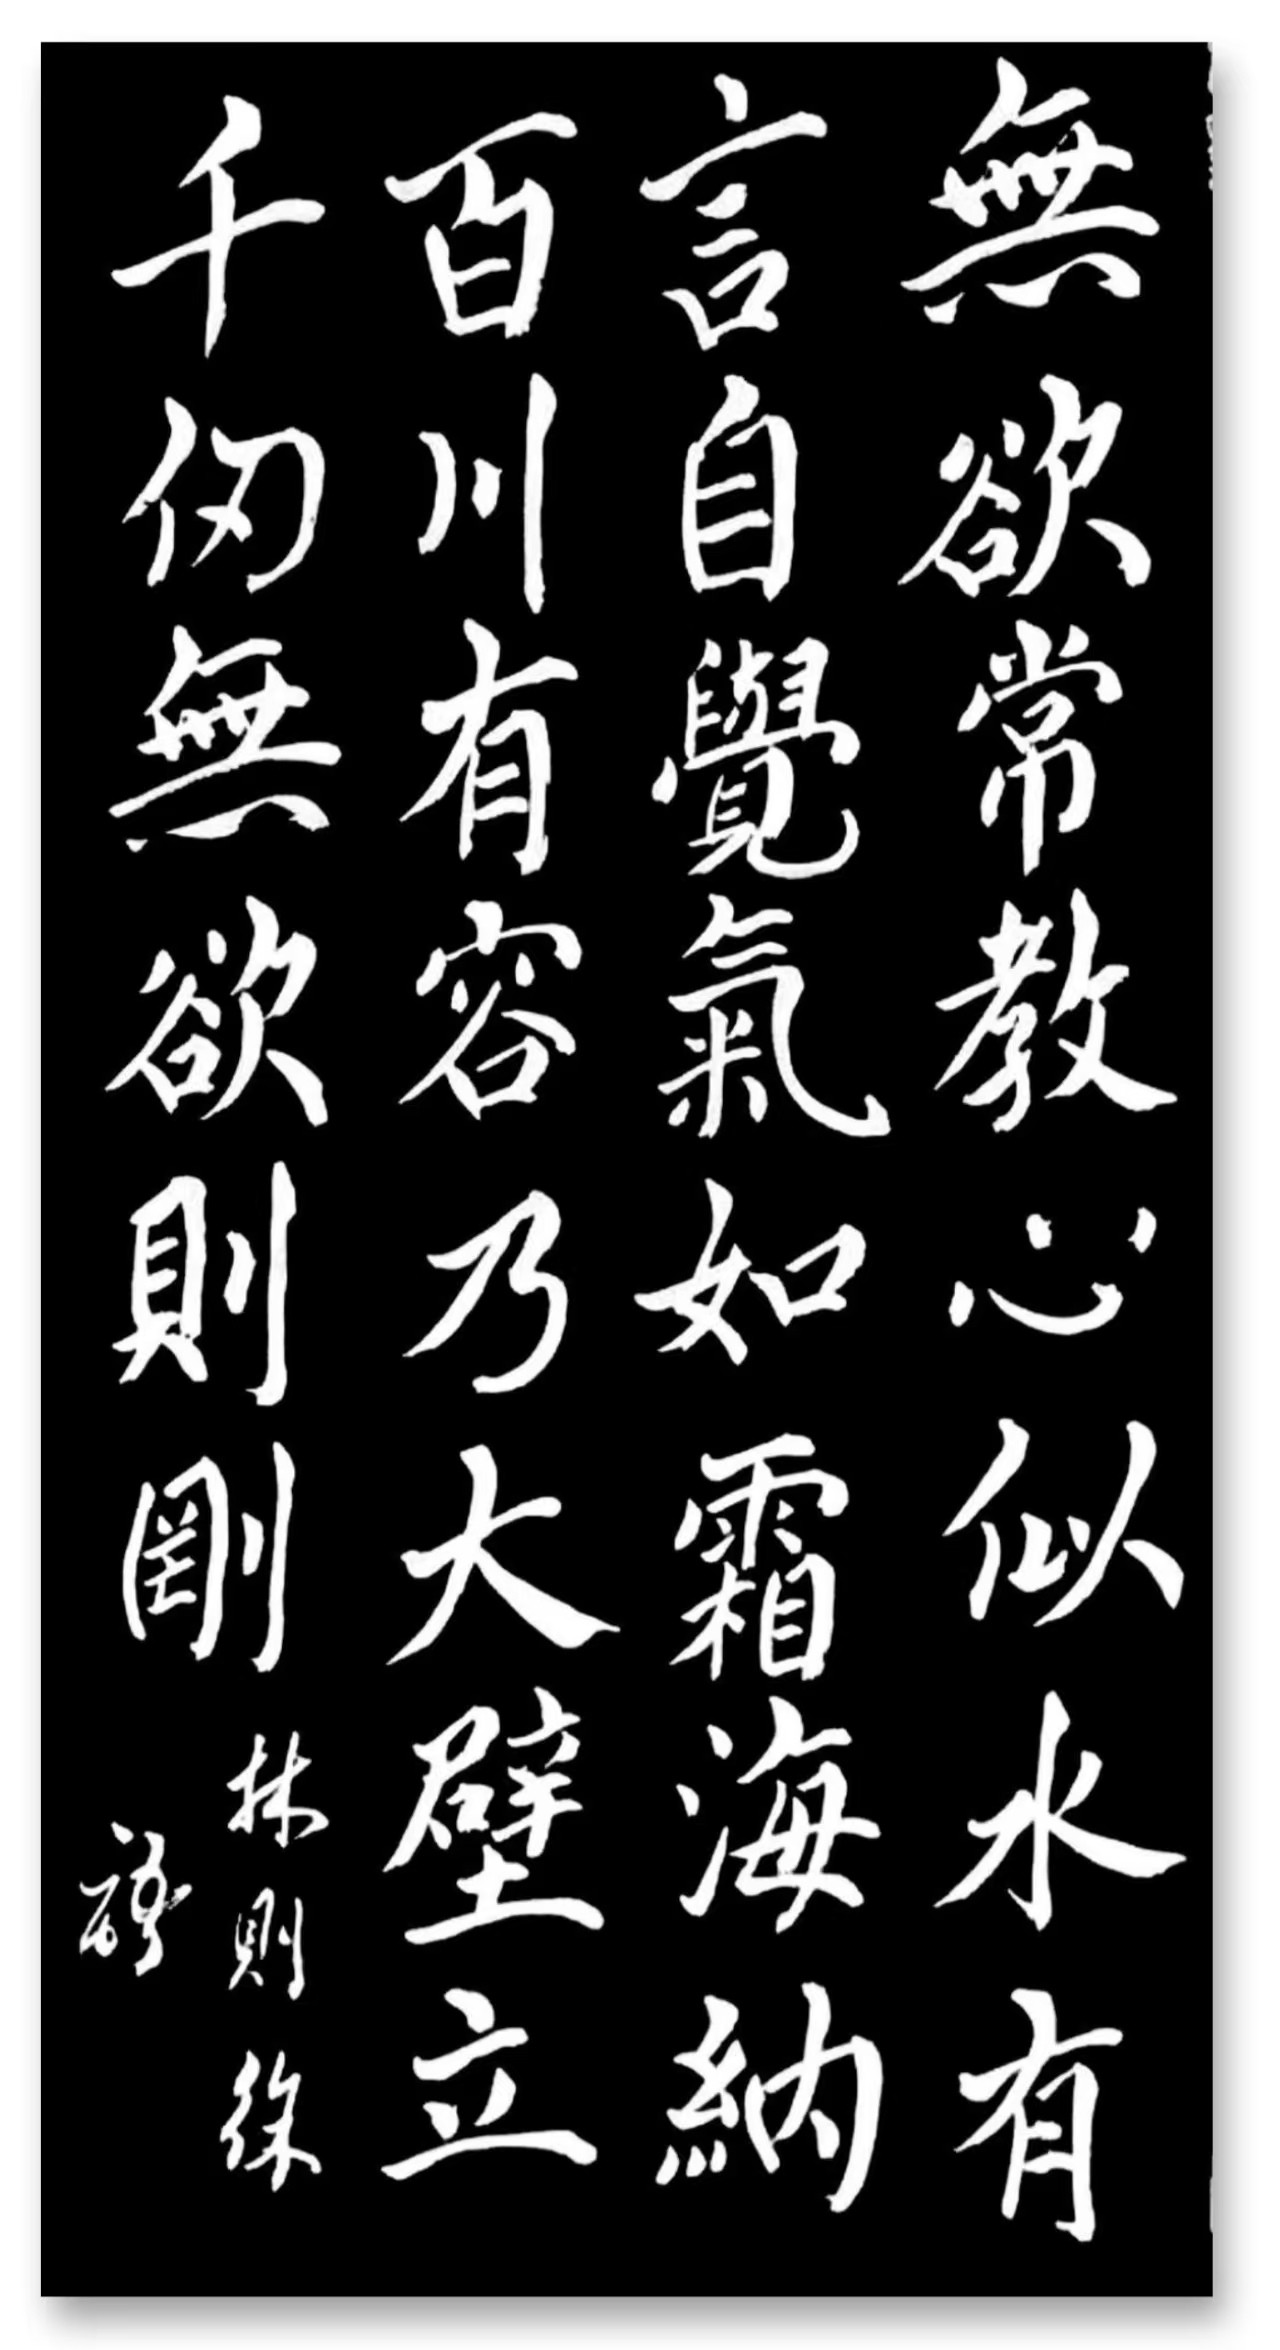 無欲常教心似水有
言自覺氣如霜海納
百川有容乃大壁立
千仞無欲則剛
林則徐